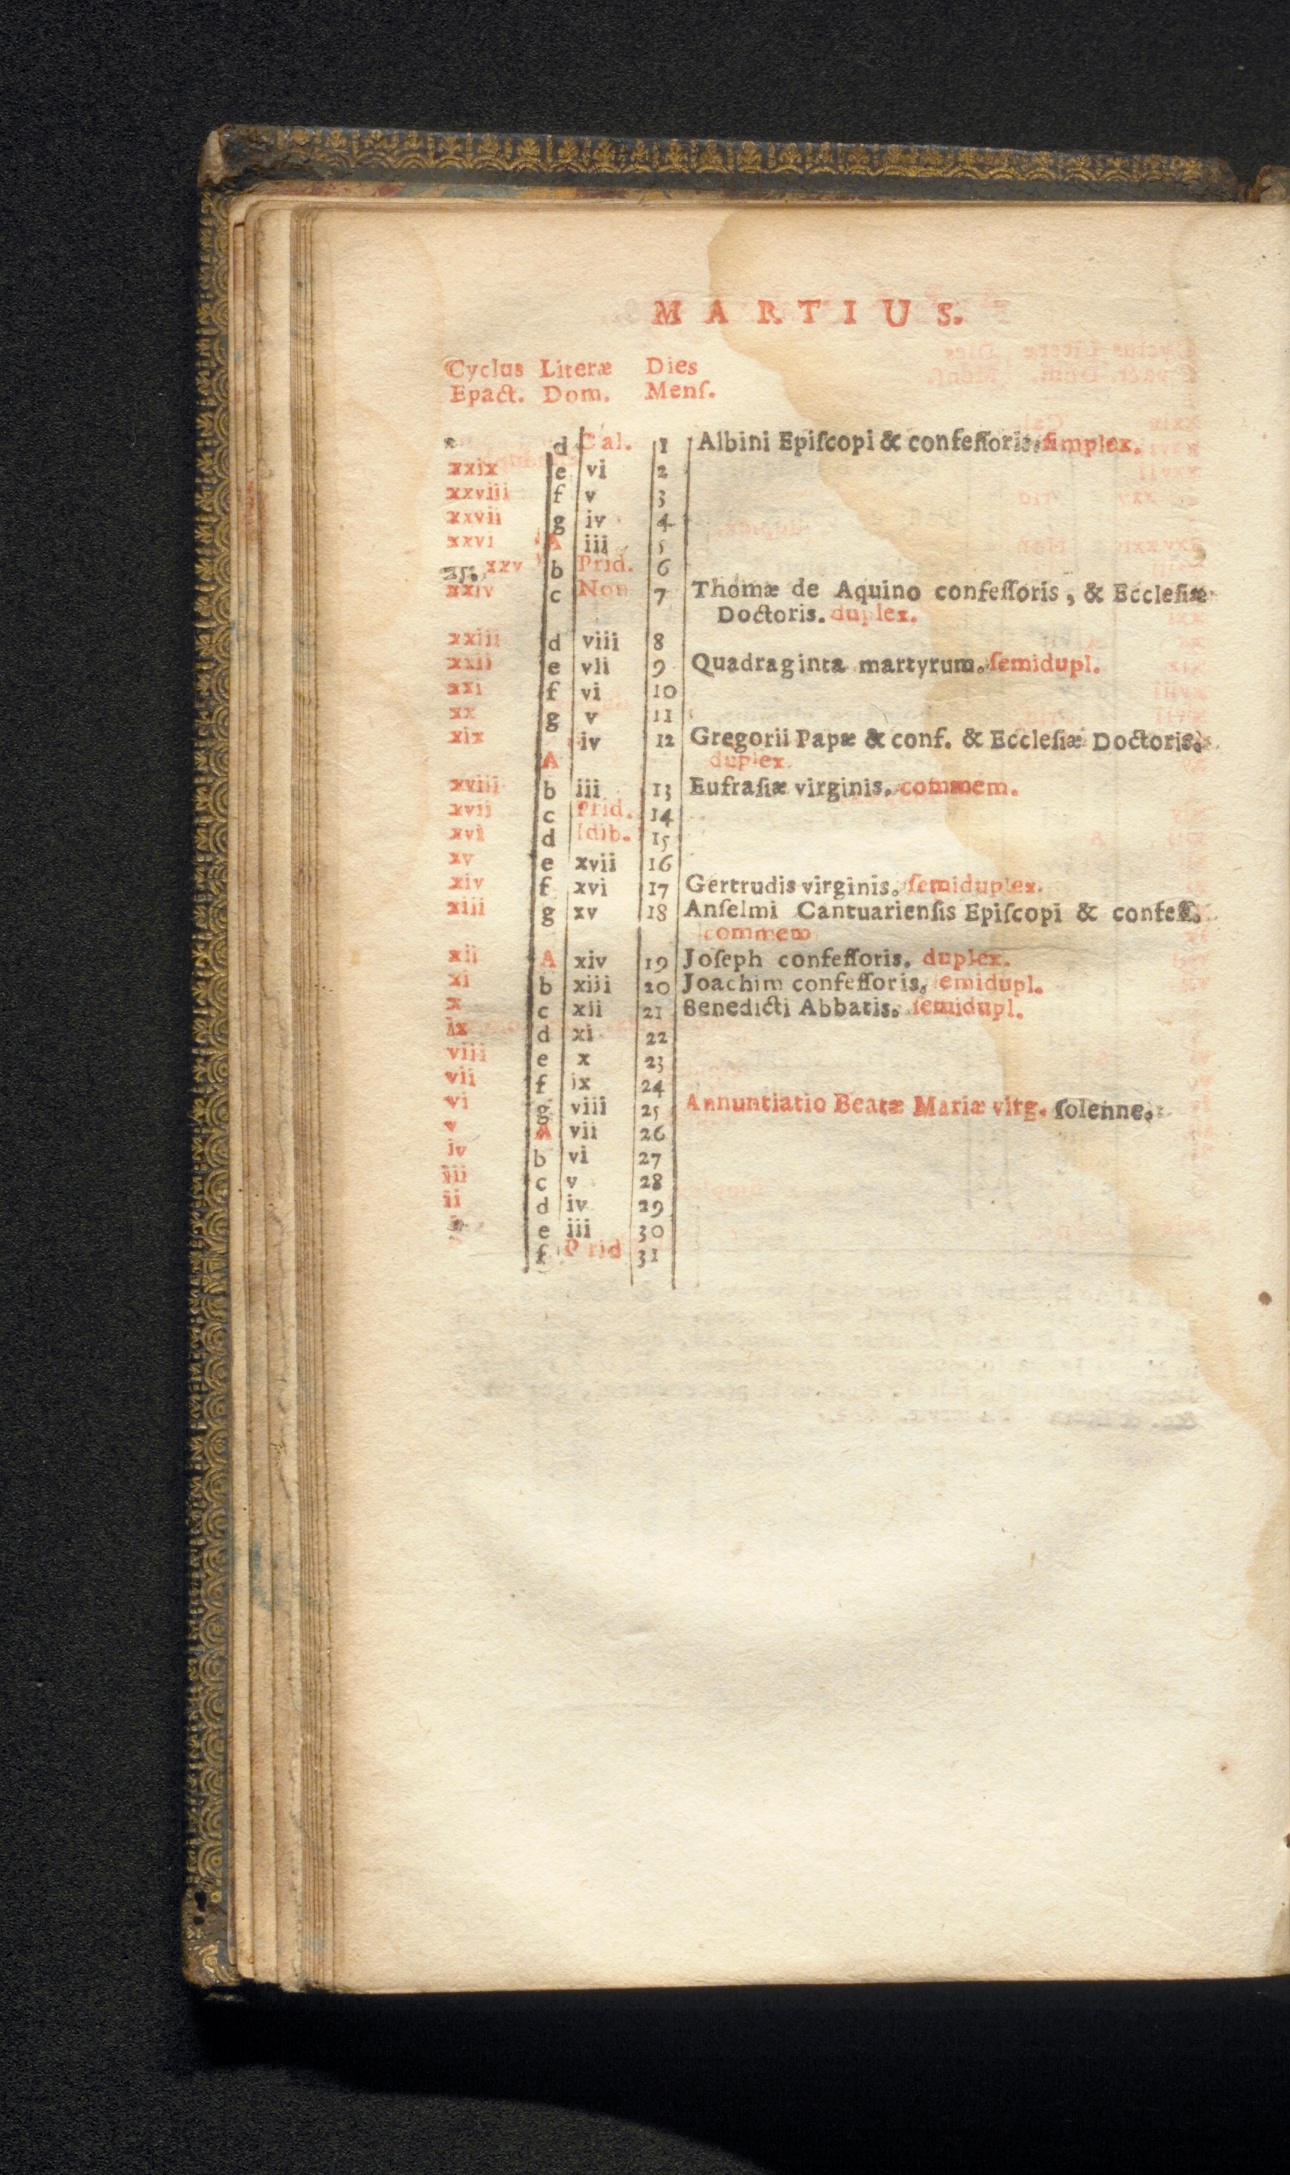 MARTIUS.
Cyclus Literæ Dies
Epact. Dom. Menſ.
* d Cal. 1 Albini Epiſcopi & confeſſoris. ſimplex.
xxix e vi 2
xxviii f v 3
xxvii g iv 4
xxvi A iii 5
25. xxv b Prid. 6
xxiv c Non 7 Thomæ de Aquino confeſſoris, & Eccleſiæ
Doctoris. duplex.
xxiii d viii 8
xxii e vii 9 Quadraginta martyrum. ſemidupl.
xxi f vi 10
xx g v 11
xix A iv 12 Gregorii Papæ & conf. & Eccleſiæ Doctoris.
duplex.
xviii b iii 13 Eufraſiæ virginis. commem.
xvii c Prid. 14
xvi d Idib. 15
xv e xvii 16
xiv f xvi 17 Gertrudis virginis. ſemiduplex.
xiii g xv 18 Anſelmi Cantuarienſis Epiſcopi & confeſſ.
commem
xii A xiv 19 Joſeph confeſſoris. duplex.
xi b xiii 20 Joachim confeſſoris. ſemidupl.
x c xii 21 Benedicti Abbatis. ſemidupl.
ix d xi 22
viii e x 23
vii f ix 24
vi g viii 25 Annuntiatio Beatæ Mariæ virg. ſolenne.
v A vii 26
iv b vi 27
iii c v 28
ii d iv 29
e iii 30
f Prid 31